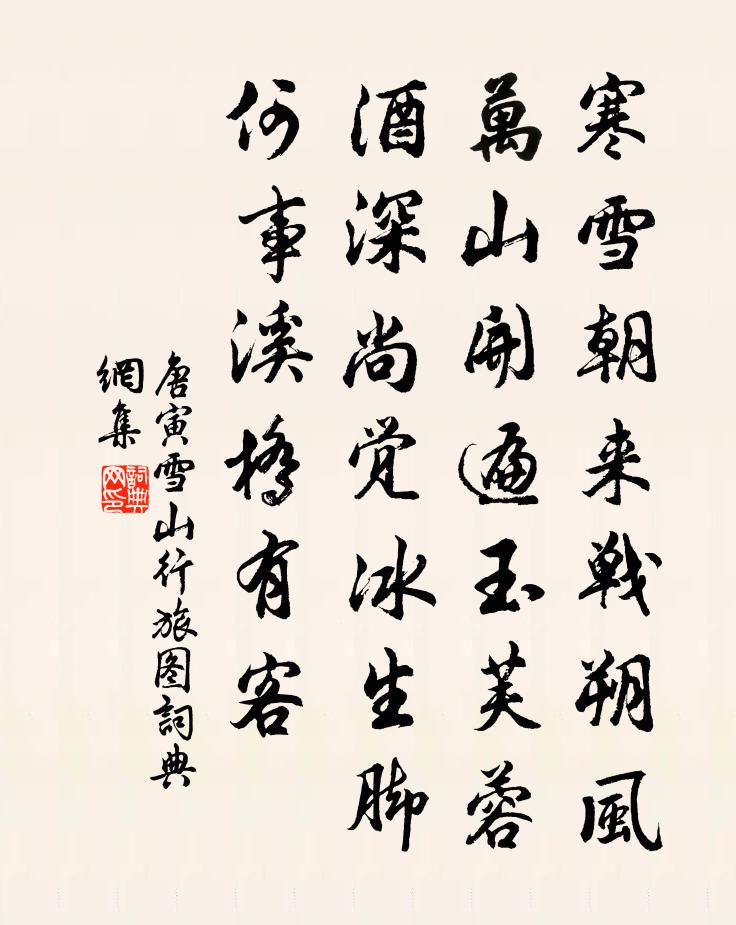 寒雪朝来戰朔風
萬山開遍玉芙蓉
酒深尚觉冰生脚
何事溪橋有客
唐寅雪山行旅图詞典
網集
詞典
网印